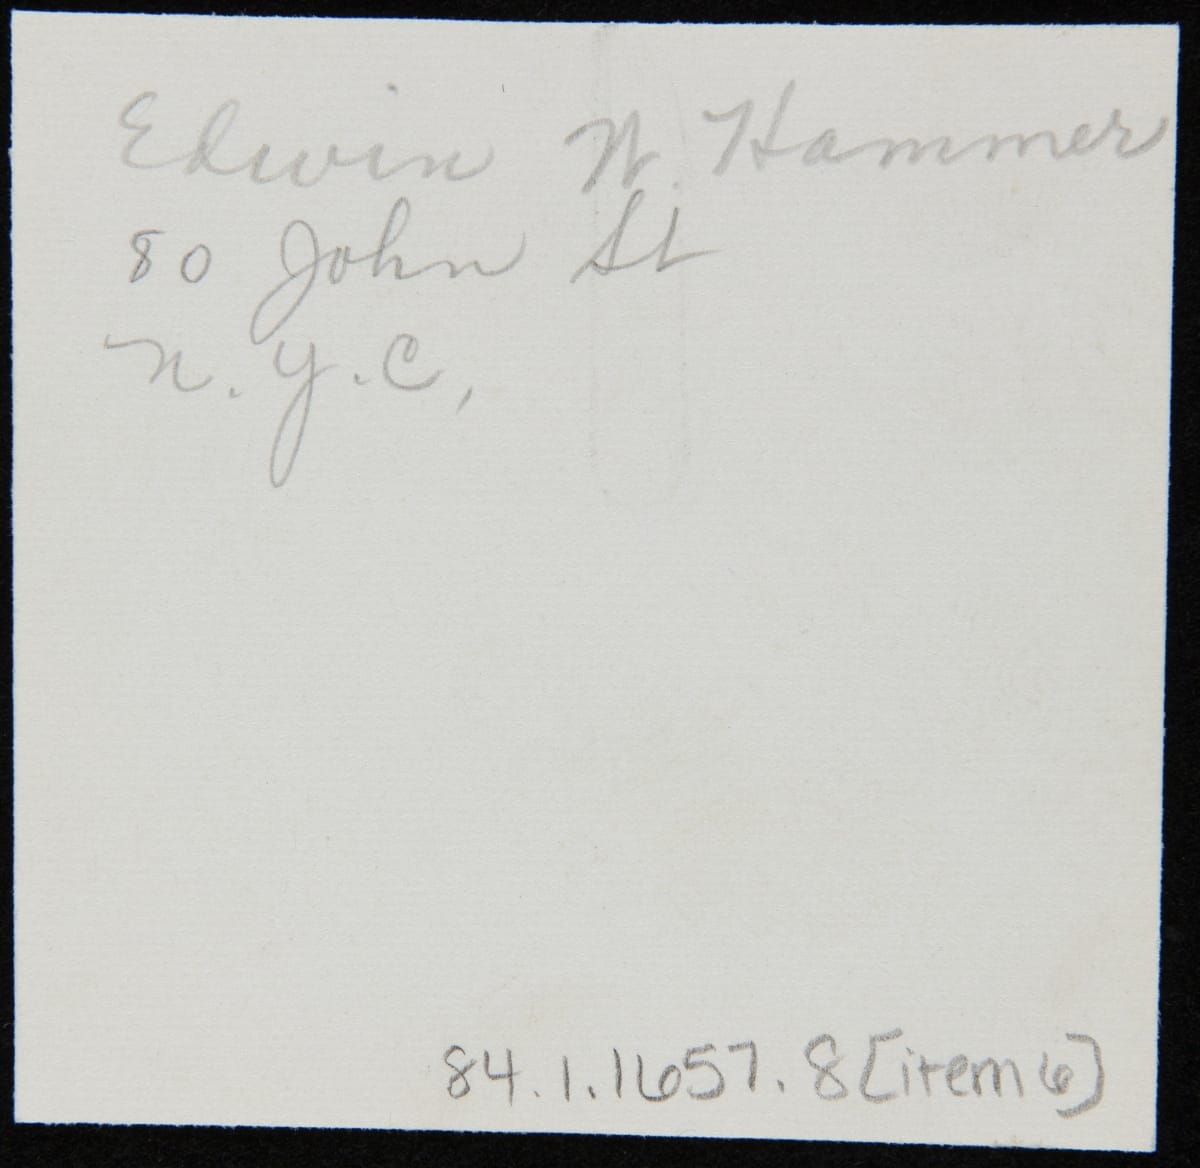 Edwin W. Hammer
80 John St
N.Y.C,
84.1.1657.8[item 6]